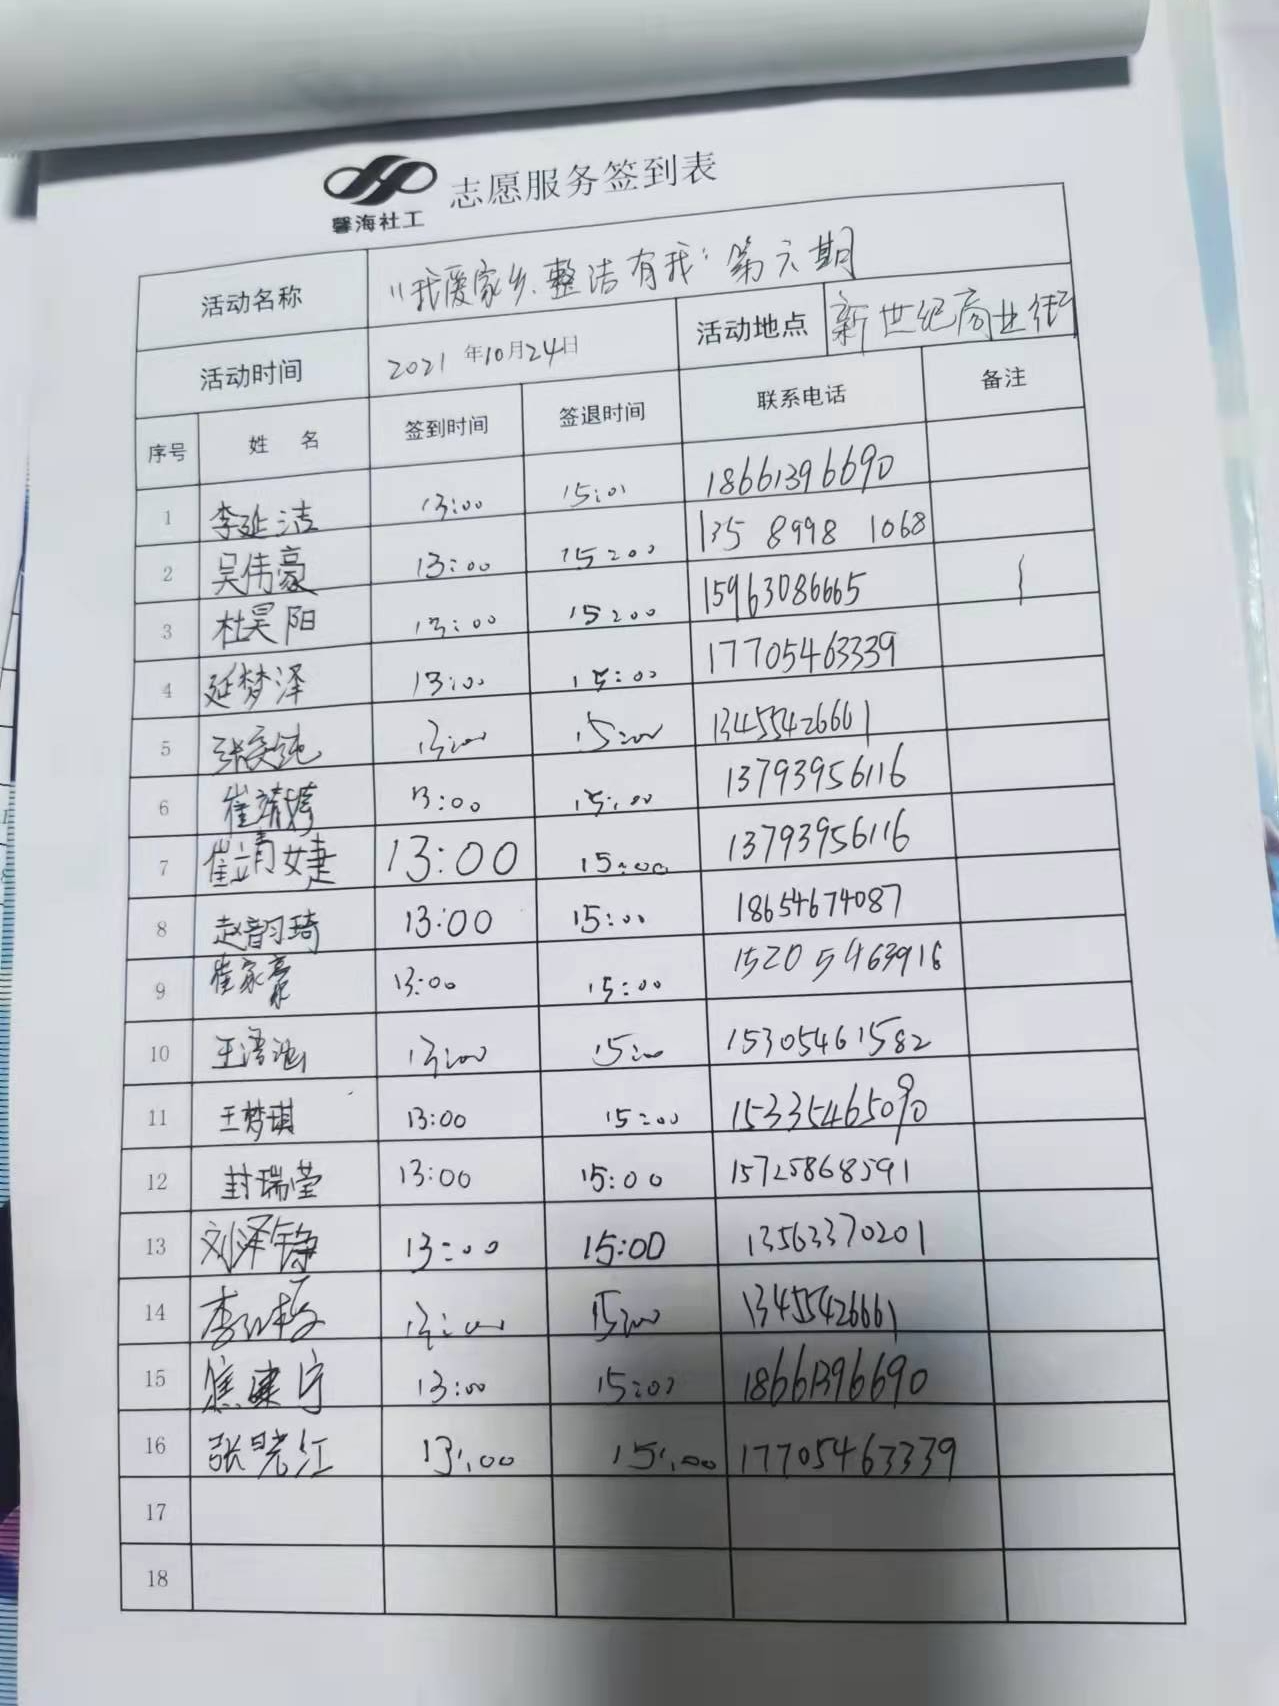 馨海社工 志愿服务签到表
活动名称 "我爱家乡、整洁有我"第六期
活动时间 2021年10月24日 活动地点 新世纪商业街
序号 姓名 签到时间 签退时间 联系电话 备注
1 李延洁 13:00 15:01 18661396690
2 吴伟豪 13:00 15:00 135 8998 1068
3 杜昊阳 13:00 15:00 15963086665
4 延梦泽 13:00 15:00 17705463339
5 13:00 15:00 13455426661
6 崔靖婷 13:00 15:00 13793956116
7 崔靖婕 13:00 15:00 13793956116
8 赵韵琦 13:00 15:00 18654674087
9 崔家豪 13:00 15:00 15205463916
10 13:00 15:00 15305461582
11 王梦琪 13:00 15:00 15335465090
12 封瑞莹 13:00 15:00 15725868591
13 刘泽铮 13:00 15:00 13563370201
14 13:00 15:00 13455426661
15 焦建宁 13:00 15:00 18661396690
16 张晃江 13:00 15:00 17705463339
17
18